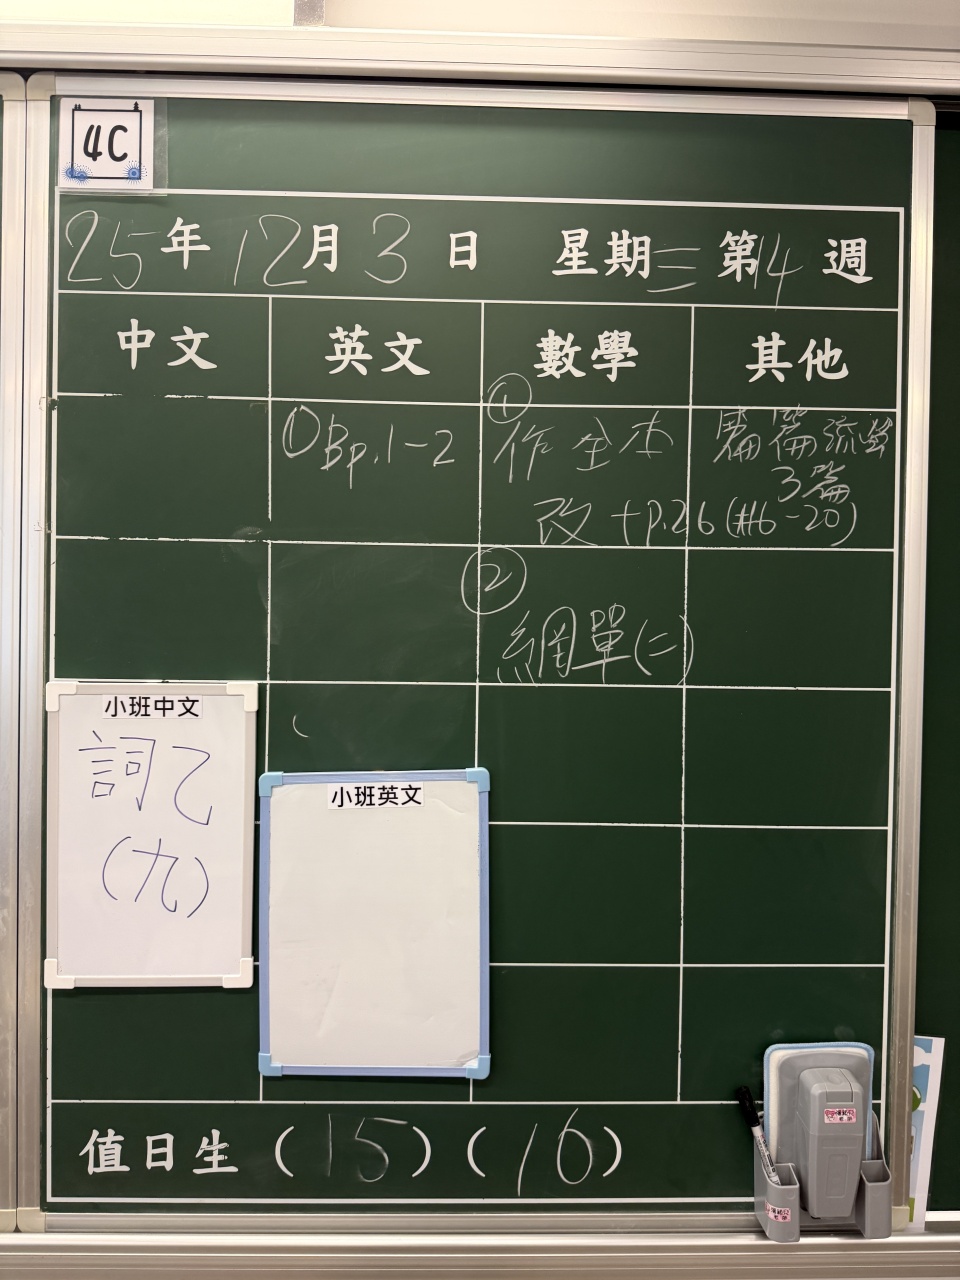 4C
25年12月3日 星期三第14週
中文 英文 數學 其他
①Bp.1-2
①
作全本
改+p.26(#16-20)
篇篇流螢
3篇
②
網單(二)
小班中文
詞乙
(九)
小班英文
值日生(15)(16)